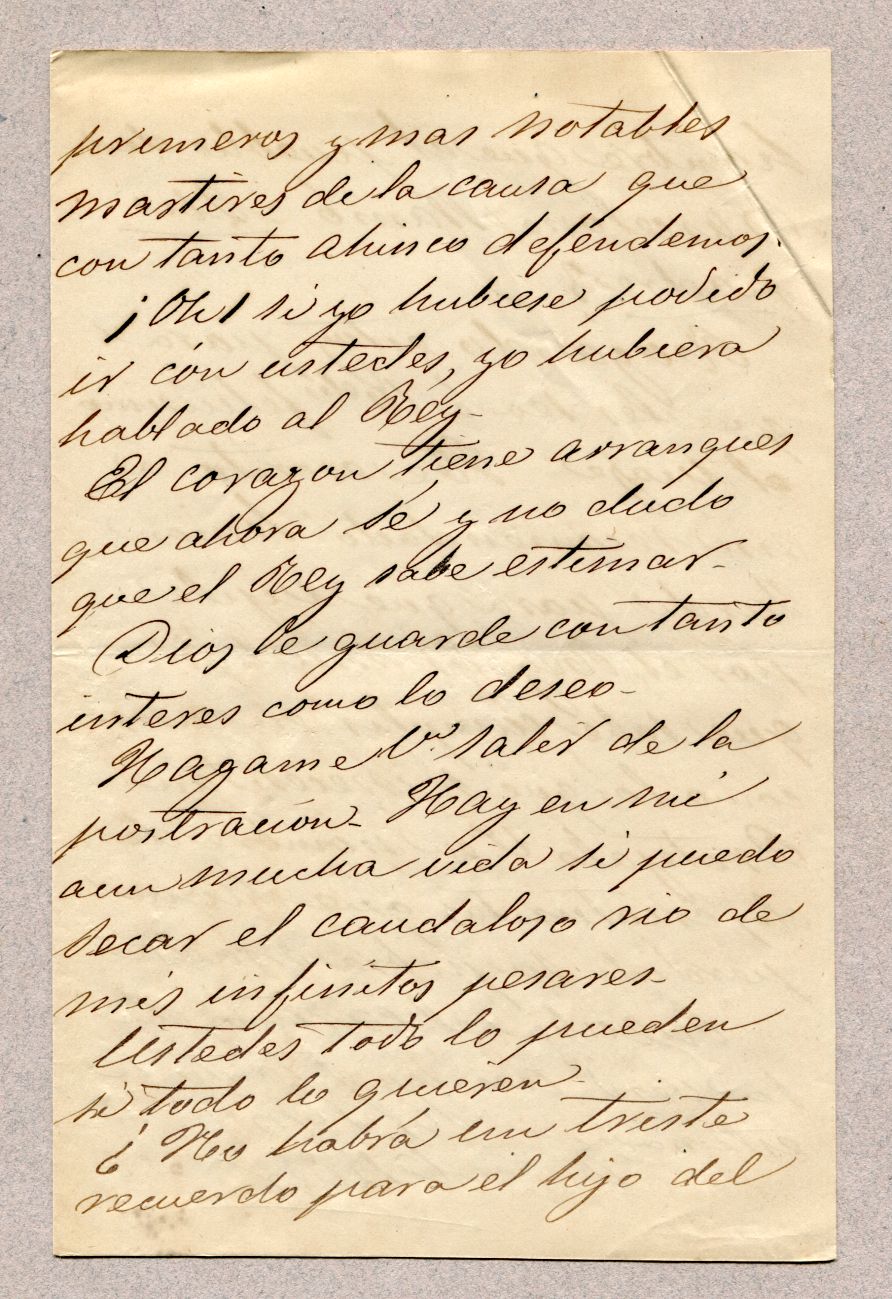 primeros y mas notables
martires de la causa que
con tanto ahinco defendemos.
¡Oh! si yo hubiese podido
ir con ustedes, yo hubiera
hablado al Rey-
El corazon tiene arranques
que ahora sé y no dudo
que el Rey sabe estimar-
Dios le guarde con tanto
interes como lo deseo-
Hagame Vd. salir de la
postración- Hay en mi
aun mucha vida si puedo
secar el caudaloso rio de
mis infinitos pesares-
Ustedes todo lo pueden
si todo lo quieren-
¿No habrá un triste
recuerdo para el hijo del